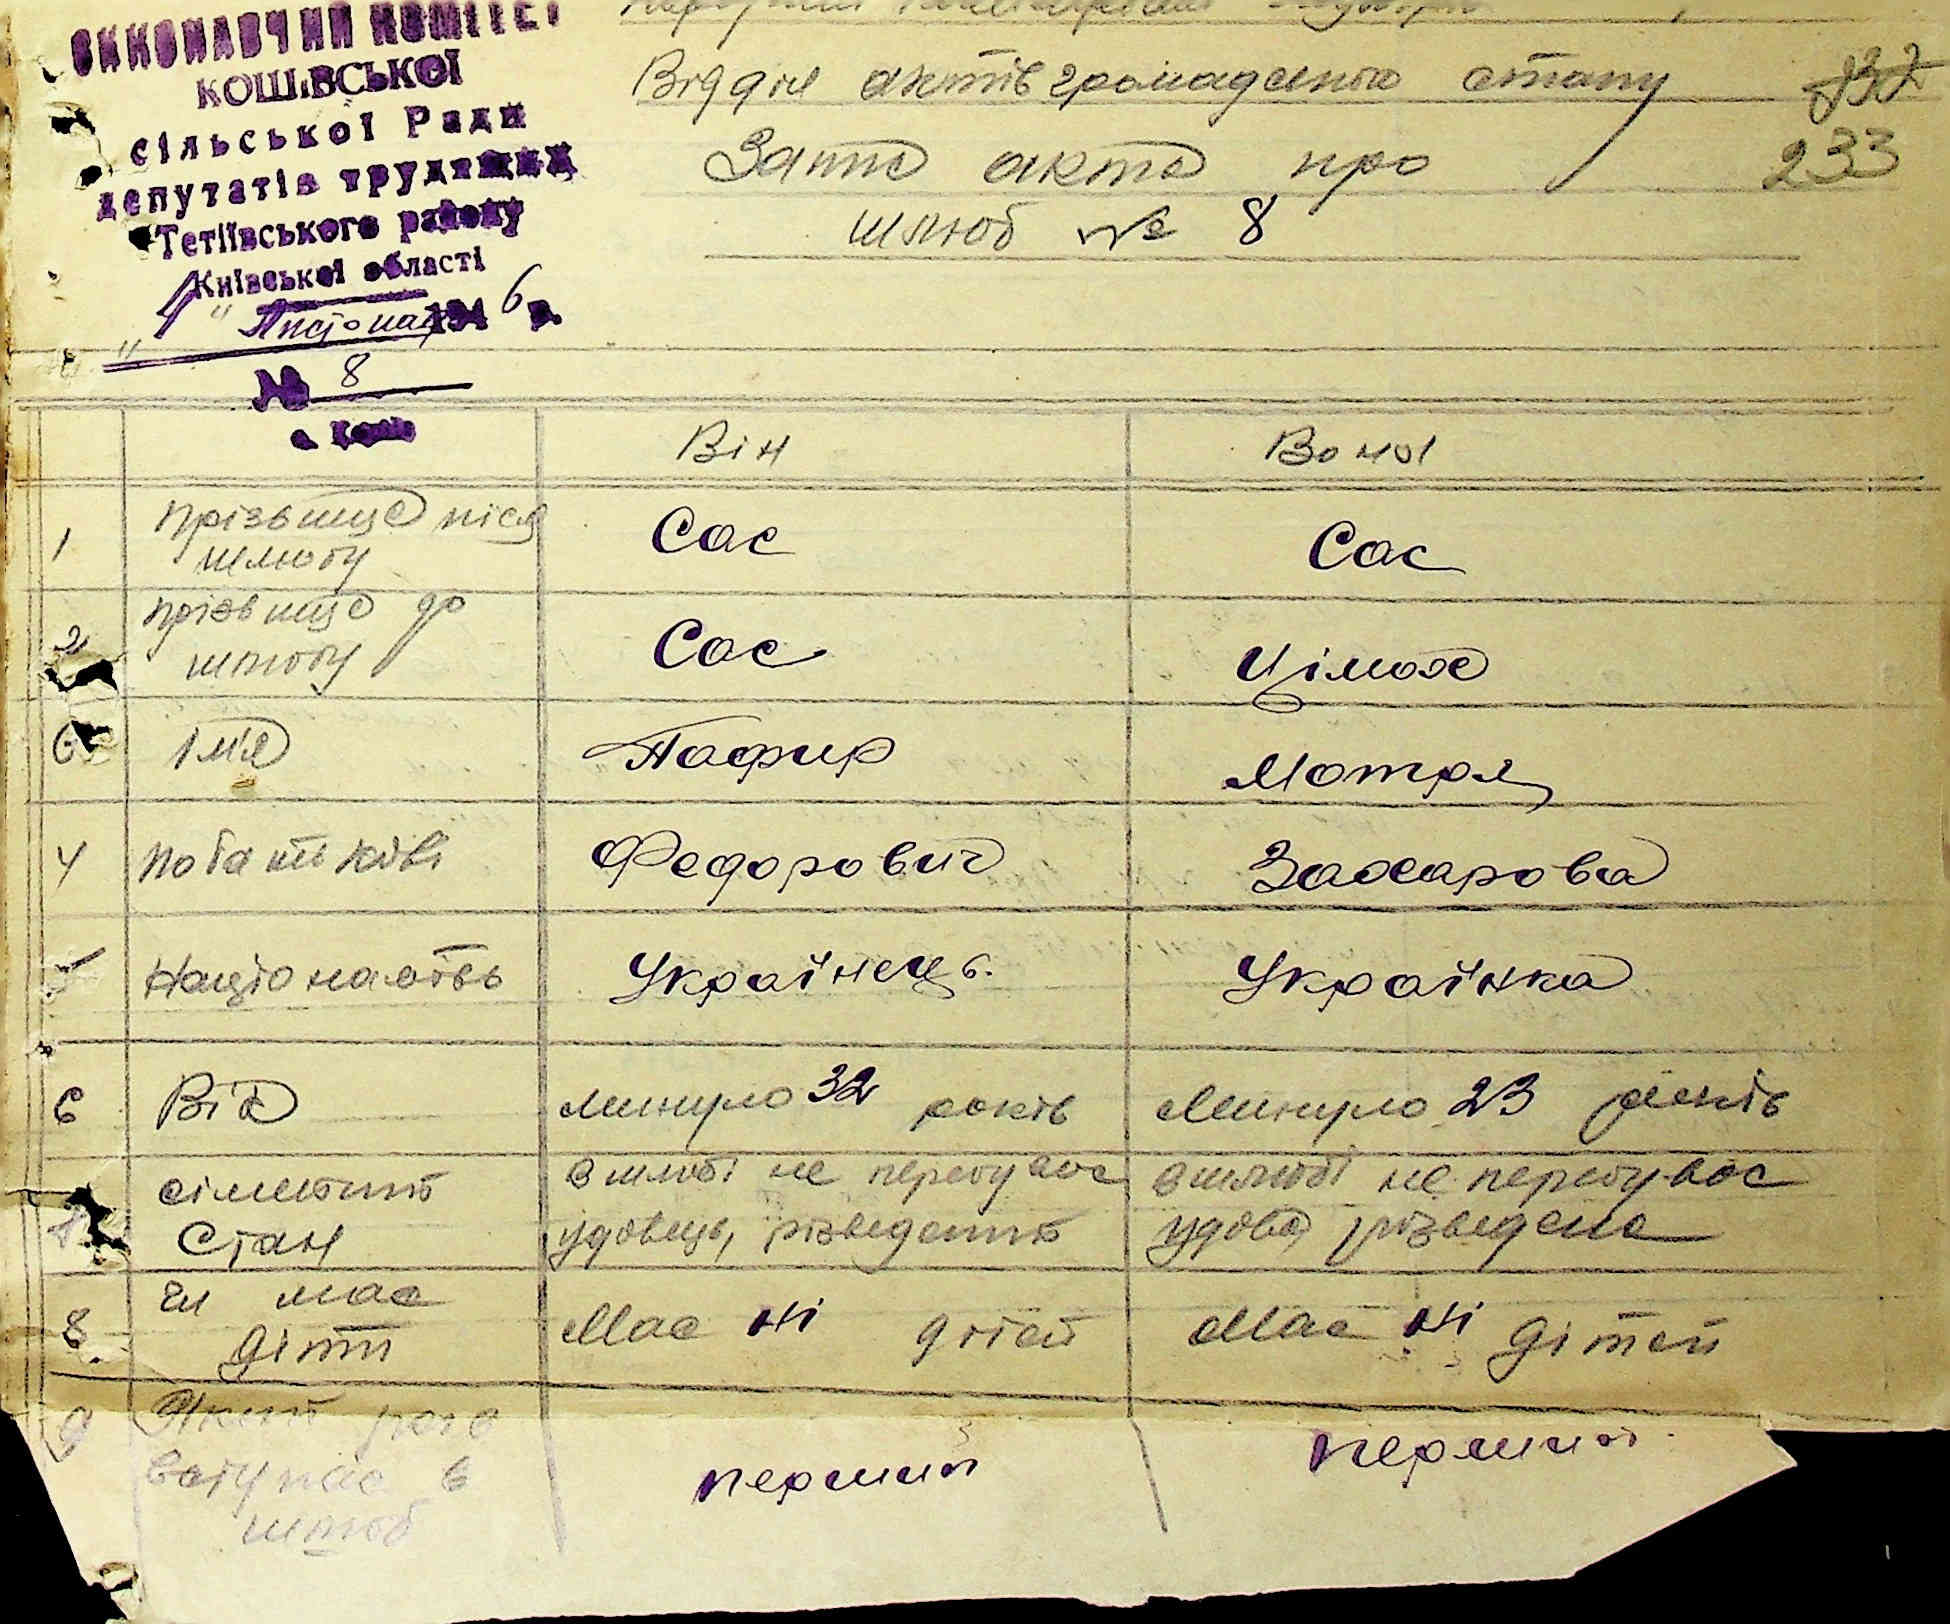 ВИКОНАВЧИЙ КОМІТЕТ
КОШІВСЬКОЇ
сільської Ради
депутатів трудящих
Тетіївського району
Київської області
"4" Листопад 1946 р.
№ 8
с. Кошів
Відділ актів громадського стану
232
Запис акта про
233
шлюб № 8
Він Вона
1 прізвище після шлюбу Сас Сас
2 прізвище до шлюбу Сас Цімох
3 Ім'я Пафир Мотря
4 по батькові Федорович Захарова
5 Національність Українець. Українка
6 Вік минуло 32 років Минуло 23 років
7 сімейний стан в шлюбі не перебував удовець, різведений в шлюбі не перебував удова, різведена
8 чи має діти Має ні дітей Має ні дітей
9 Який раз вступає в шлюб перший перший